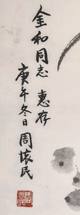 金和同志惠存
庚午冬日周怀民